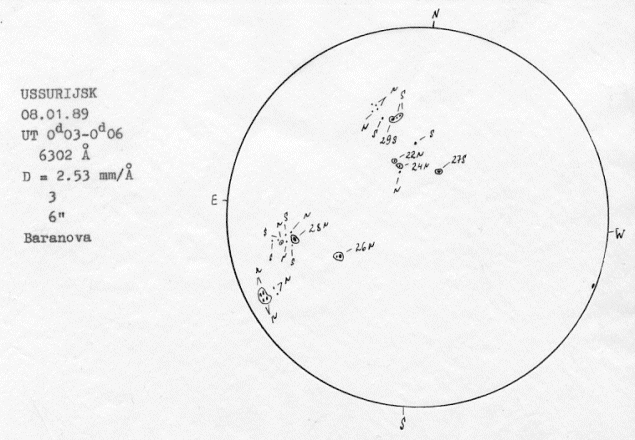 USSURIJSK
08.01.89
UT 0ᵈ03-0ᵈ06
6302 Å
D = 2.53 mm/Å
3
6"
Baranova
N
N
S
N
S
29S
S
22N
24N
27S
N
E
S
N
N
S
28N
S
S
N
S
26N
W
N
N
N
S